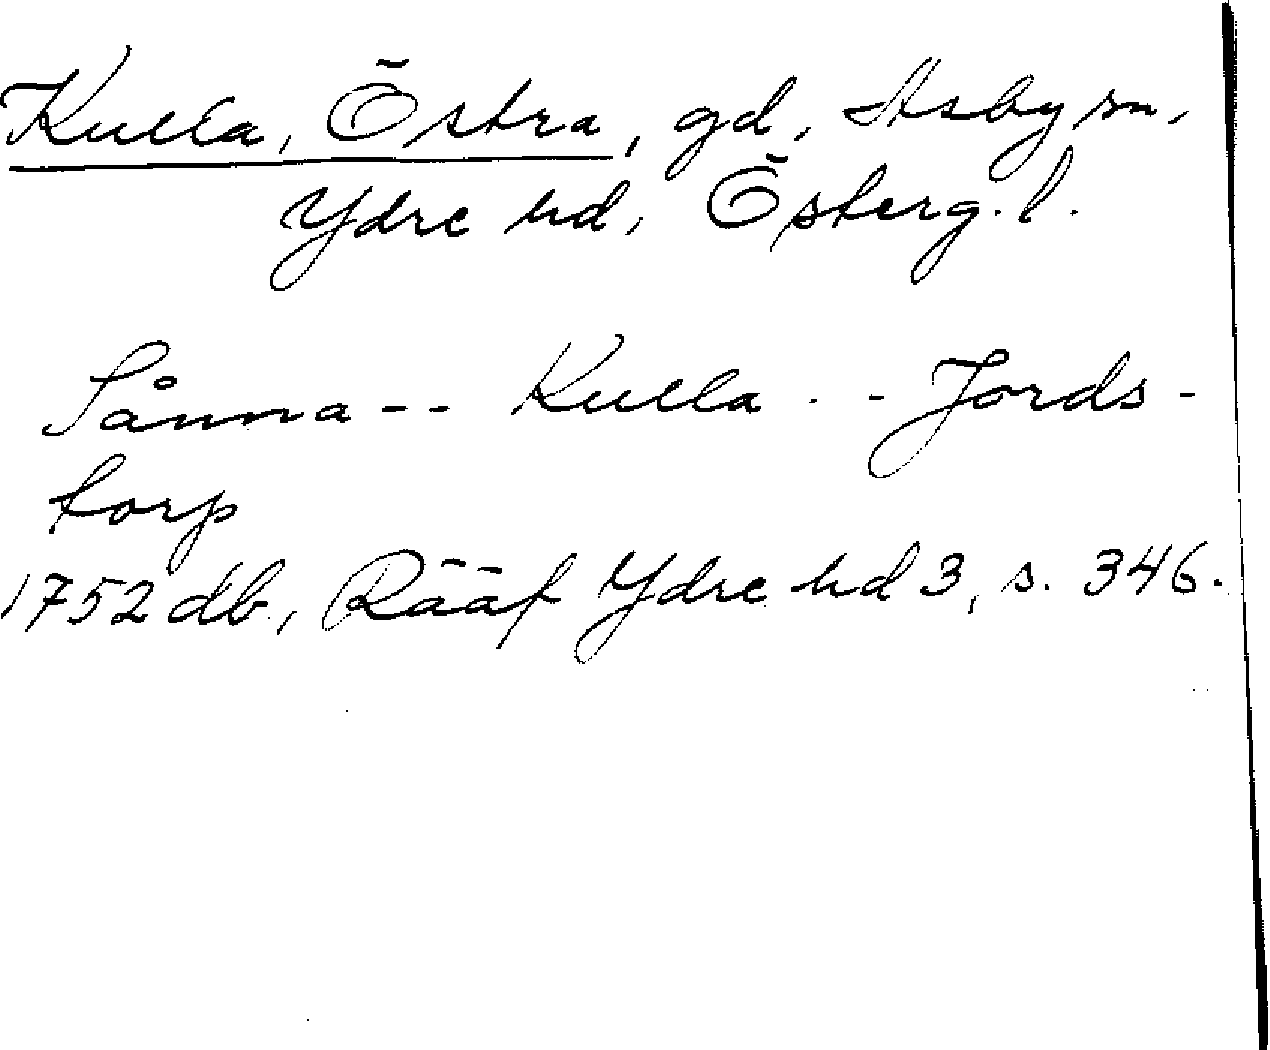 Kulla, Östra, gd, Asby sn,
Ydre hd, Österg. l.
Sånna -- Kulla - - Jords-
torp
1752 db., Rääf Ydre hd 3, s. 346.